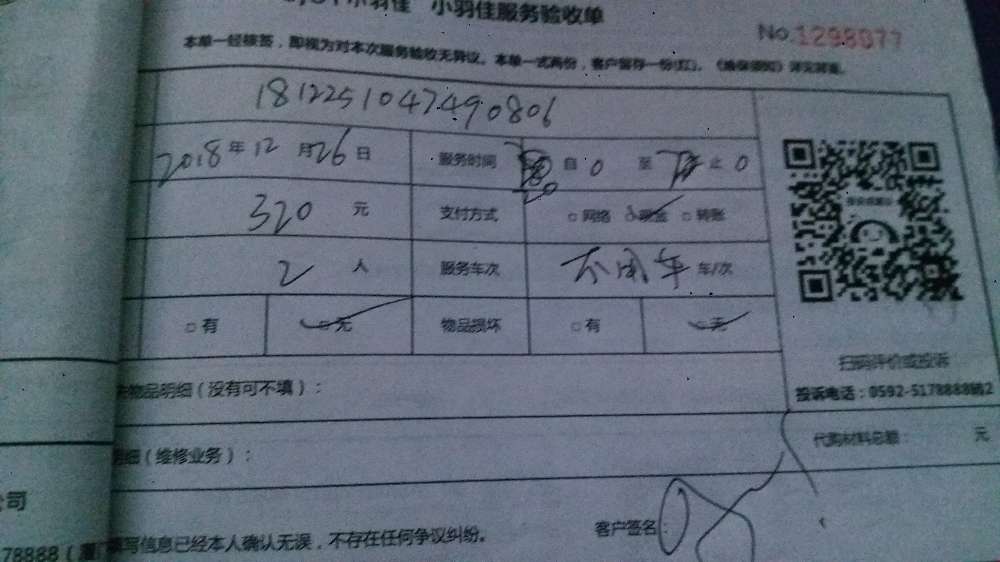 小羽佳服务验收单
No.1298077
本单一经核签，即视为对本次服务验收无异议。本单一式两份，客户留存一份(红)。
1812251047490806
2018年12月26日 服务时间 自0 至 止0
320元 支付方式 □网络 □现金 □转账
2人 服务车次 不用车 车/次
□有 □无 物品损坏 □有 □无
扫码评价或投诉
物品明细（没有可不填）：
投诉电话：0592-5178888
代购材料总额： 元
明细（维修业务）：
公司
客户签名：
78888
填写信息已经本人确认无误，不存在任何争议纠纷。